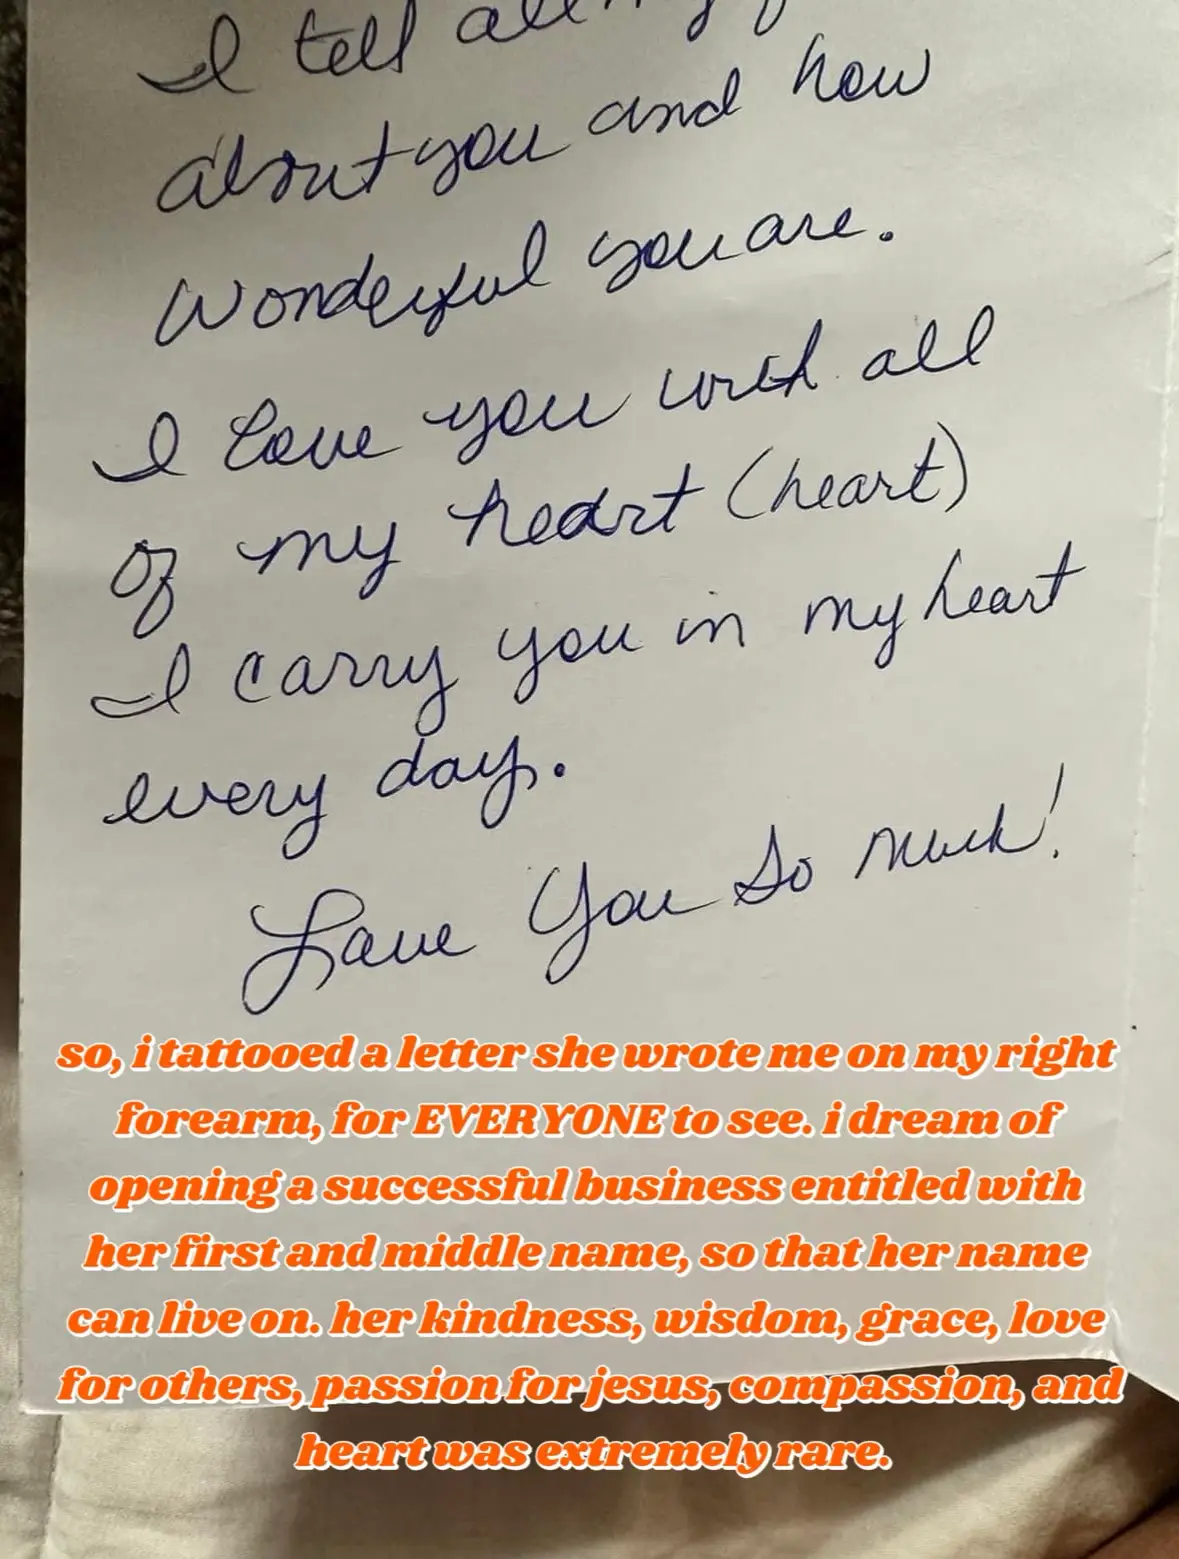 I tell all my
about you and how
wonderful you are.
I love you with all
of my heart (heart)
I carry you in my heart
every day.
Love You So Much!
so, i tattooed a letter she wrote me on my right
forearm, for EVERYONE to see. i dream of
opening a successful business entitled with
her first and middle name, so that her name
can live on. her kindness, wisdom, grace, love
for others, passion for jesus, compassion, and
heart was extremely rare.